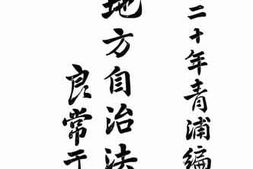 二十年青浦編
地方自治法
良常王